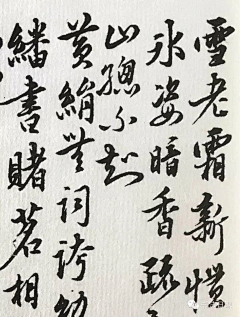 雪老霜新慣
冰姿暗香疏
山總不知
黃絹無詞誇幼
繙書賭茗相